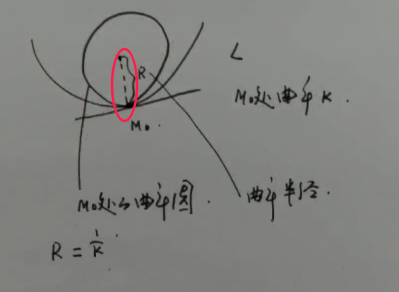 L
R
M₀处曲率 K.
M₀.
M₀处的曲率圆.
曲率半径.
R = 1/K.